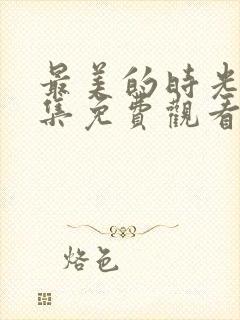 最美的時光
集免費觀看
烙色